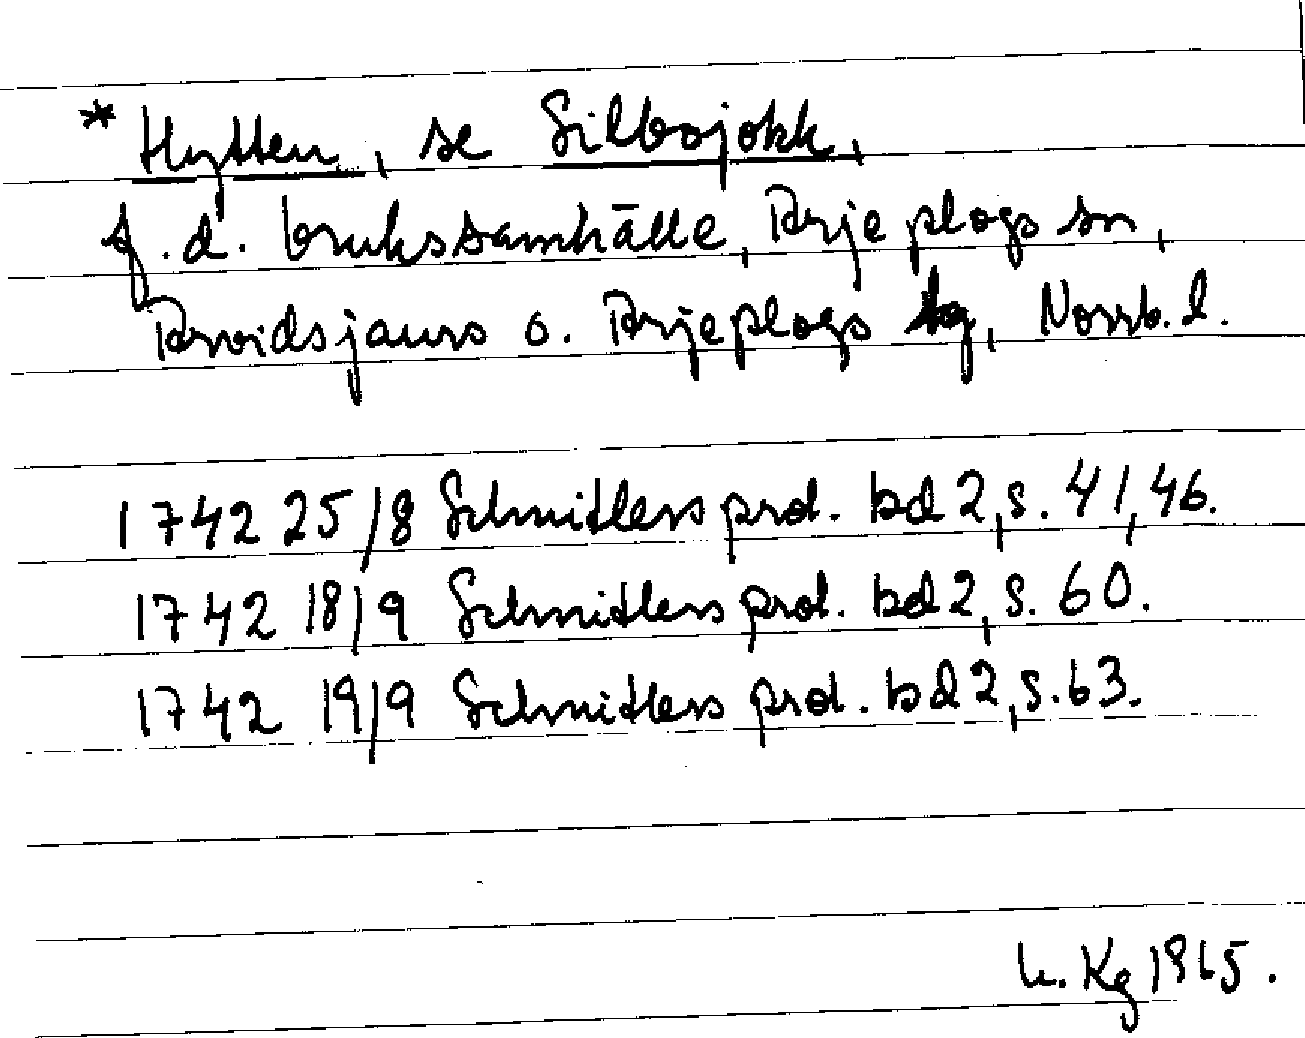 * Hytten, se Silbojokk,
f.d. brukssamhälle, Arjeplogs sn,
Arvidsjaurs o. Arjeplogs tg, Norrb. l.
1742 25/8 Schnitlers prot. bd 2, s. 41, 46.
1742 18/9 Schnitlers prot. bd 2, s. 60.
1742 19/9 Schnitlers prot. bd 2, s. 63.
Kg 1965.